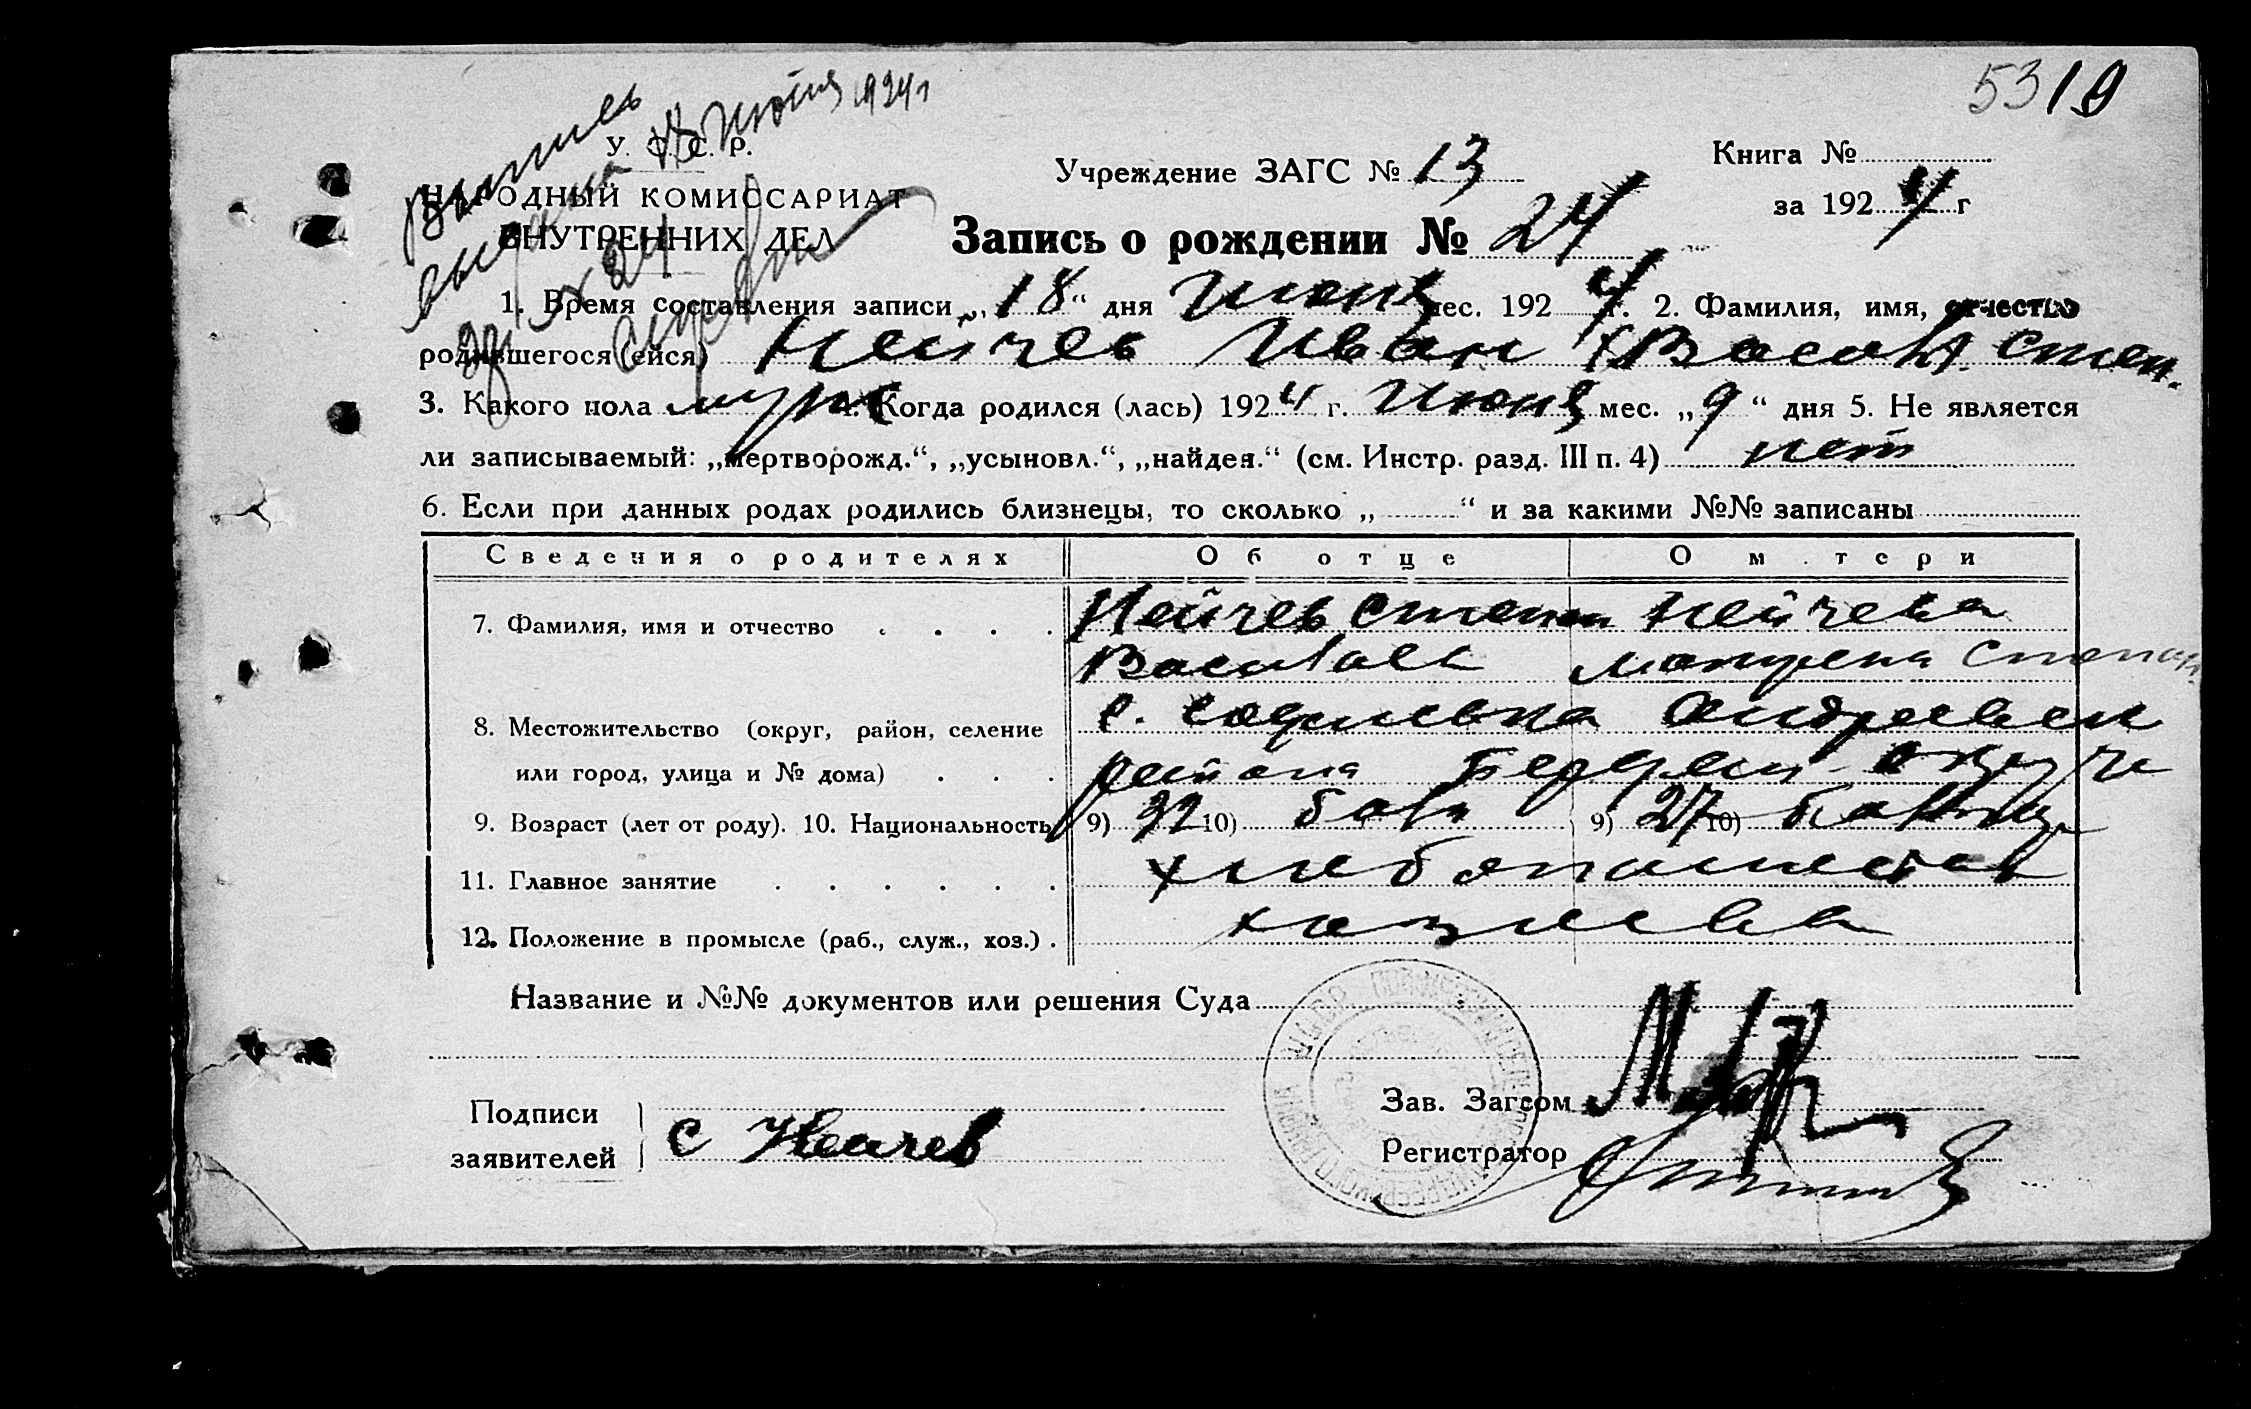 5319
Выпись
выдана 18 Июня 1924 г
У. С. С. Р.
НАРОДНЫЙ КОМИССАРИАТ
ВНУТРЕННИХ ДЕЛ
Учреждение ЗАГС № 13
Книга №
за 1924 г
Запись о рождении № 24
1. Время составления записи „18“ дня Июня мес. 1924 г. 2. Фамилия, имя, отчество
родившегося (ейся) Нейчев Иван Степ.
3. Какого пола муж 4. Когда родился (лась) 1924 г. Июня мес. „9“ дня 5. Не является
ли записываемый: „мертворожд.“, „усыновл.“, „найден.“ (см. Инстр. разд. III п. 4) нет
6. Если при данных родах родились близнецы, то сколько „ “ и за какими №№ записаны
Сведения о родителях Об отце О м тери
7. Фамилия, имя и отчество Нейчев Степан Нейчева
8. Местожительство (округ, район, селение с. Софиевка Андреевск
или город, улица и № дома) района Бердян. округа
9. Возраст (лет от роду). 10. Национальность 9) 32 10) болг 9) 27 10)
11. Главное занятие хлебопашество
12. Положение в промысле (раб., служ., хоз.) хозяева
Название и №№ документов или решения Суда
Подписи
заявителей С Нейчев
Зав. Загсом
Регистратор